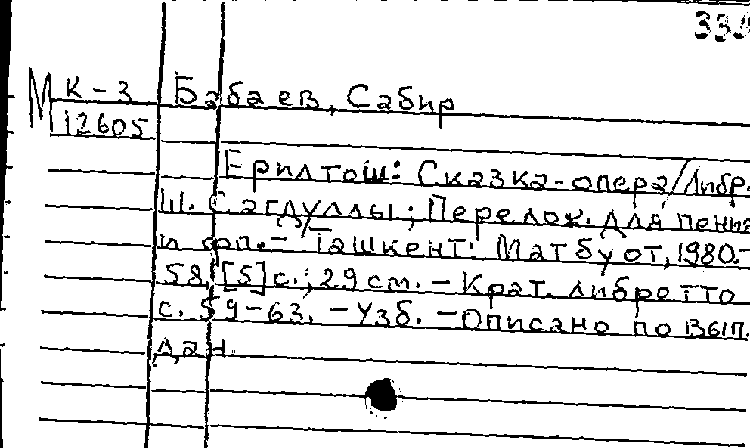 333
М К-3 Бабаев, Сабир
12605
Ерилтош: Сказка-опера/Либр.
Ш. Сагдуллы; Перелож. для пения
и фп.- Ташкент: Матбуот, 1980.-
58, [5] с.; 29 см. - Крат. либретто
с. 59-63. - Узб. - Описано по вып.
дан.